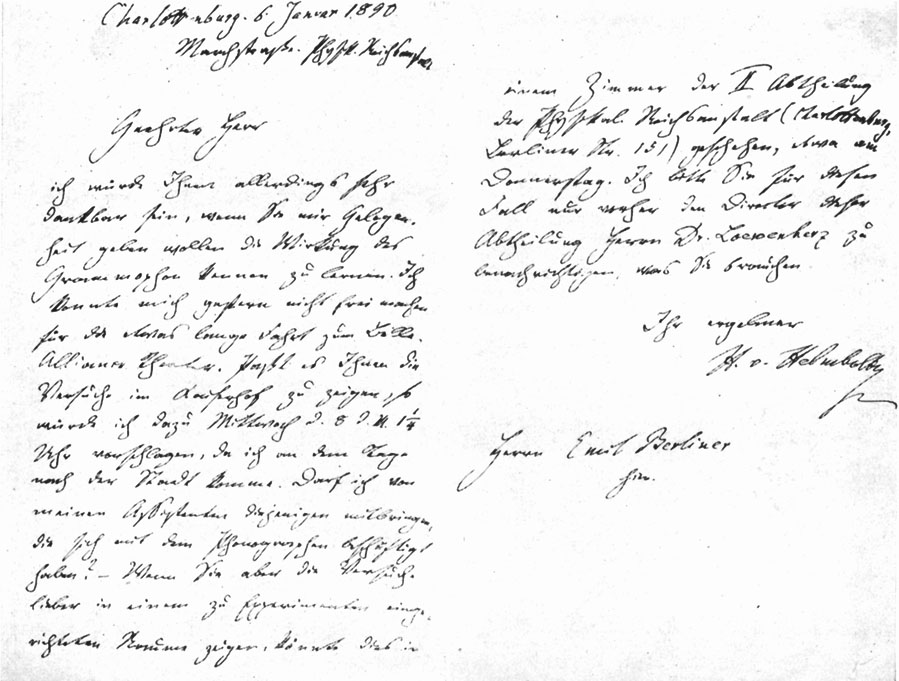 Charlottenburg. 6. Januar 1890
Marchstraße. Phys. Reichsanstalt
Geehrter Herr
ich würde Ihnen allerdings sehr
dankbar sein, wenn Sie mir Gelegen-
heit geben wollen die Wirkung des
Grammophon kennen zu lernen. Ich
konnte mich gestern nicht frei machen
für die etwas lange Fahrt zum Belle-
Alliance Theater. Paßt es Ihnen die
Versuche im Kaiserhof zu zeigen, so
würde ich dazu Mittwoch d. 8 d. M. 1¼
Uhr vorschlagen, da ich an dem Tage
nach der Stadt komme. Darf ich von
meinen Assistenten diejenigen mitbringen,
die sich mit dem Phonographen beschäftigt
haben? – Wenn Sie aber die Versuche
lieber in einem zu Experimenten einge-
richteten Raume zeigen, könnte dies in
einem Zimmer der II Abtheilung
der Physikal. Reichsanstalt (Charlottenburg,
Berliner Str. 151) geschehen, etwa am
Donnerstag. Ich bitte Sie für diesen
Fall nur vorher den Director dieser
Abtheilung Herrn Dr. Loewenherz zu
benachrichtigen, was Sie brauchen.
Ihr ergebener
H. v. Helmholtz
Herrn Emil Berliner
hier.